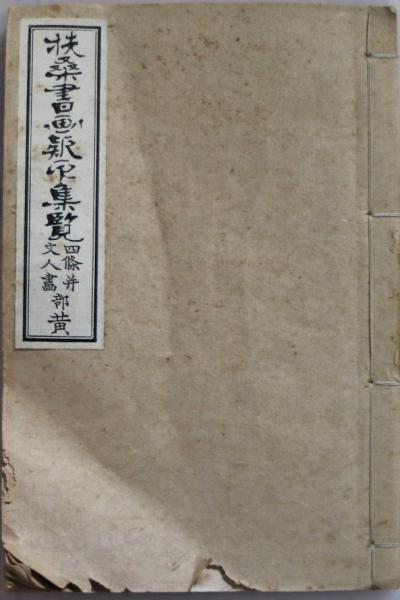 扶桑書画款印集覧
四條并
文人畵
部黄